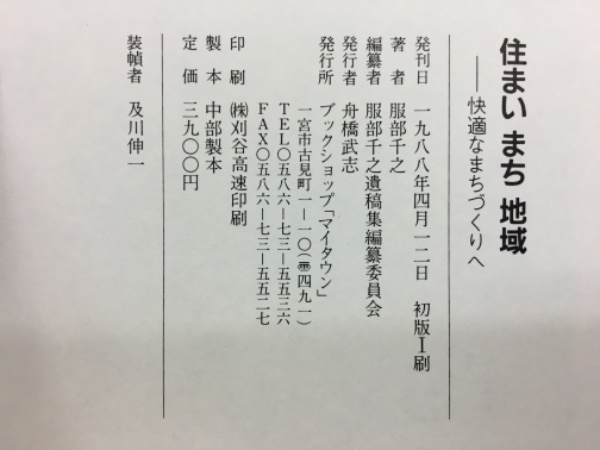 住まい まち 地域
──快適なまちづくりへ
発刊日 一九八八年四月一二日 初版Ⅰ刷
著者 服部千之
編纂者 服部千之遺稿集編纂委員会
発行者 舟橋武志
発行所 ブックショップ「マイタウン」
一宮市古見町一―一〇(〠四九一)
TEL〇五八六―七三―五五三六
FAX〇五八六―七三―五五二七
印刷 ㈱刈谷高速印刷
製本 中部製本
定価 三九〇〇円
装幀者 及川伸一